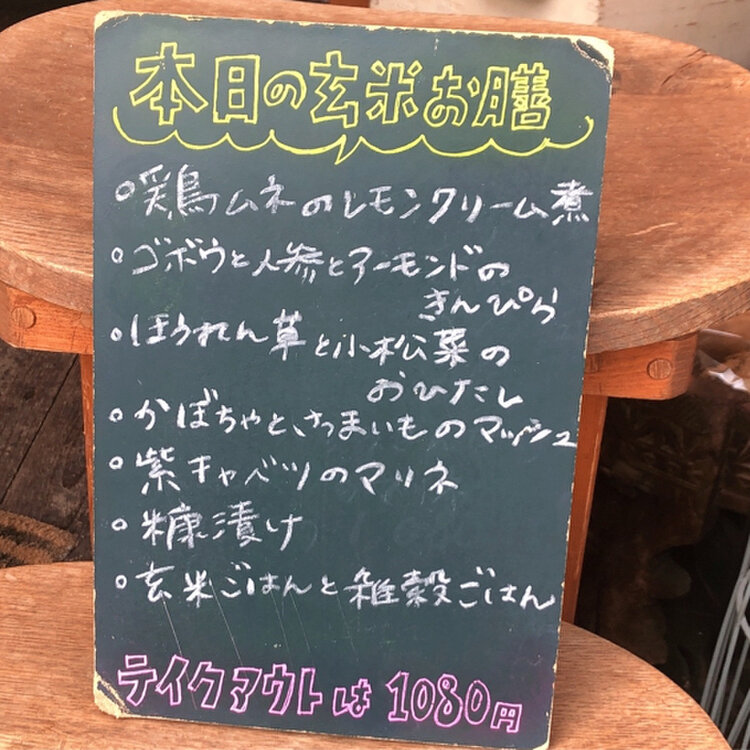 本日の玄米お膳
○鶏ムネのレモンクリーム煮
○ゴボウと人参とアーモンドの
きんぴら
○ほうれん草と小松菜の
おひたし
○かぼちゃとさつまいものマッシュ
○紫キャベツのマリネ
○糠漬け
○玄米ごはんと雑穀ごはん
テイクアウトは1080円